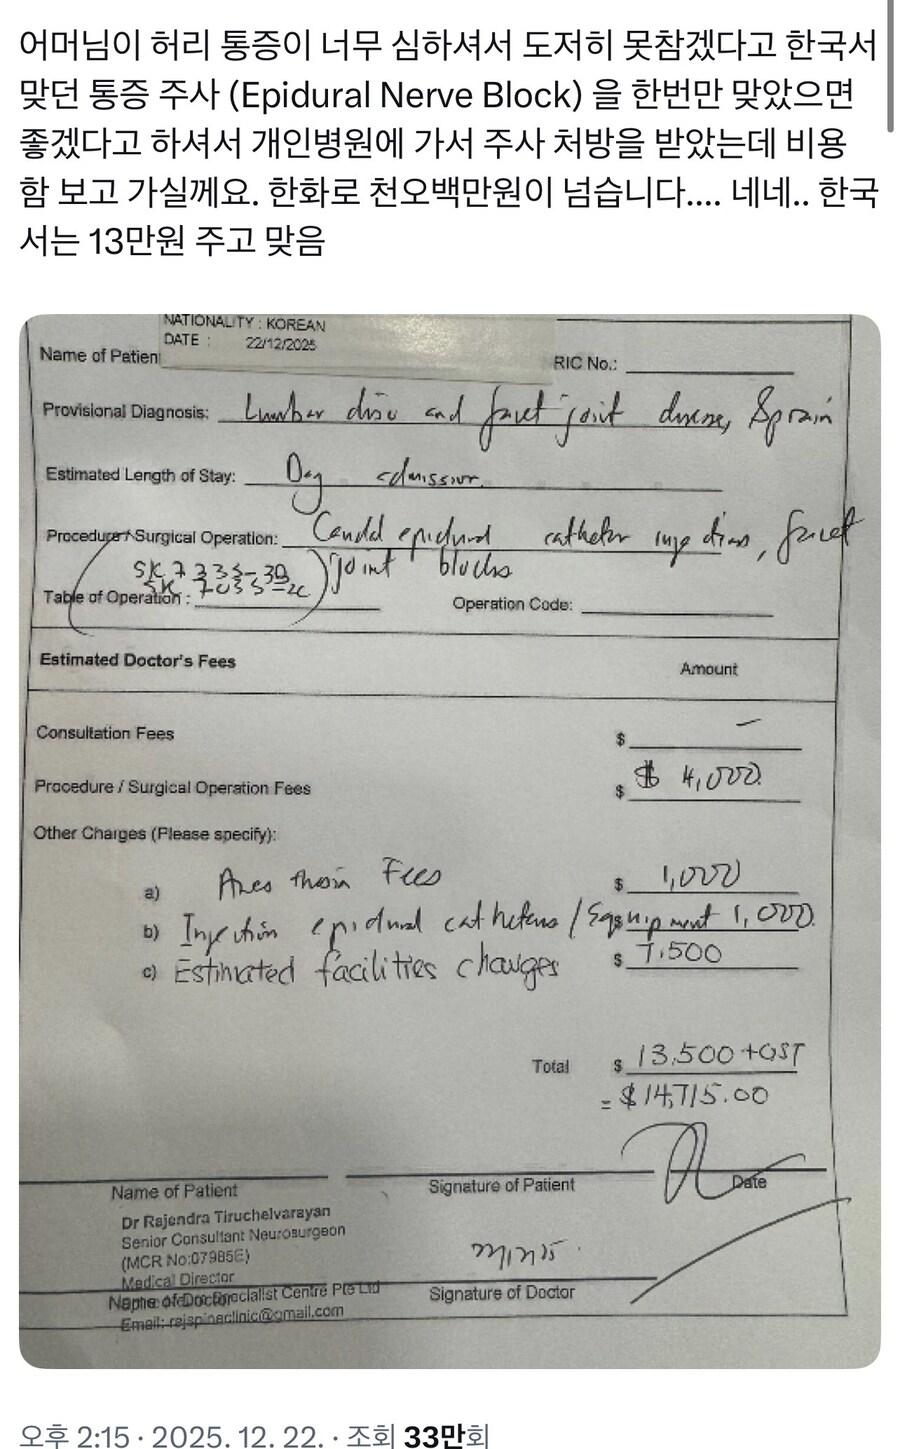 어머님이 허리 통증이 너무 심하셔서 도저히 못참겠다고 한국서
맞던 통증 주사 (Epidural Nerve Block) 을 한번만 맞았으면
좋겠다고 하셔서 개인병원에 가서 주사 처방을 받았는데 비용
함 보고 가실께요. 한화로 천오백만원이 넘습니다.... 네네.. 한국
서는 13만원 주고 맞음
NATIONALITY : KOREAN
DATE : 22/12/2025
Name of Patien
RIC No.:
Provisional Diagnosis: Lumbar disc and facet joint disease, Sprain
Estimated Length of Stay: Day admission
Procedure / Surgical Operation: Caudal epidural catheter injections, facet
joint blocks
Table of Operation :
Operation Code:
Estimated Doctor's Fees
Amount
Consultation Fees $ –
Procedure / Surgical Operation Fees $ $ 4,000
Other Charges (Please specify):
a) Fees $ 1,000
b) Injection epidural catheters / Equipment 1,000
c) Estimated facilities charges $ 7,500
Total $ 13,500 + GST
= $ 14,715.00
Name of Patient
Signature of Patient
Date
Dr Rajendra Tiruchelvarayan
Senior Consultant Neurosurgeon
(MCR No:07985E)
Medical Director
Specialist Centre Pte Ltd
Name of Doctor
Signature of Doctor
Email: rajspineclinic@gmail.com
오후 2:15 · 2025. 12. 22. · 조회 33만회